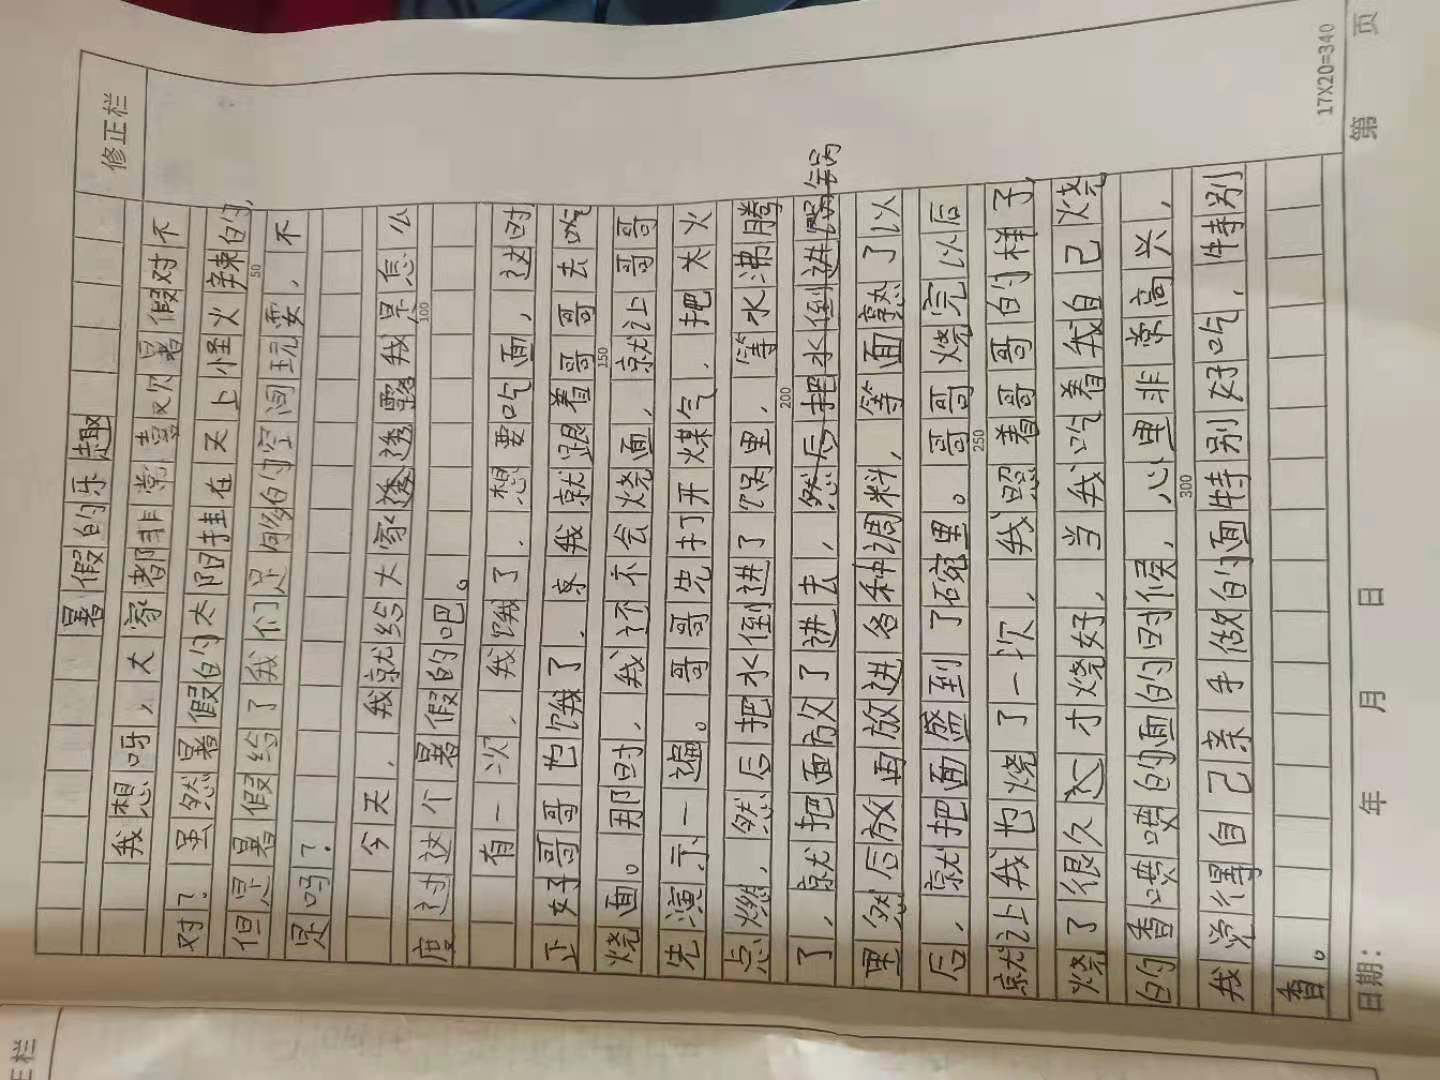 修正栏
暑假的乐趣
我想呀，大家都非常喜欢暑假对不
对？虽然暑假的太阳挂在天上怪火辣的，
50
但是暑假给了我们足够的空间玩耍，不
是吗？
今天，我就给大家透露我是怎么
100
度过这个暑假的吧。
有一次，我饿了，想要吃面，这时
正好哥哥也饿了，我就跟着哥哥去吃
150
烧面。那时，我还不会烧面，就让哥哥
先演示一遍。哥哥先打开煤气，把大火
点燃，然后把水倒进了锅里，等水沸腾
200
了，就把面放了进去，然后把水倒进锅
里然后放再放进各种调料，等面熟了以
后，就把面盛到了碗里。哥哥烧完以后
250
就让我也烧了一次，我照着哥哥的样子，
烧了很久才烧好，当我吃着我自己烧
的香喷喷的面的时候，心里非常高兴，
300
我觉得自己亲手做的面特别好吃，特别
香。
17X20=340
日期： 年 月 日 第 页
正栏